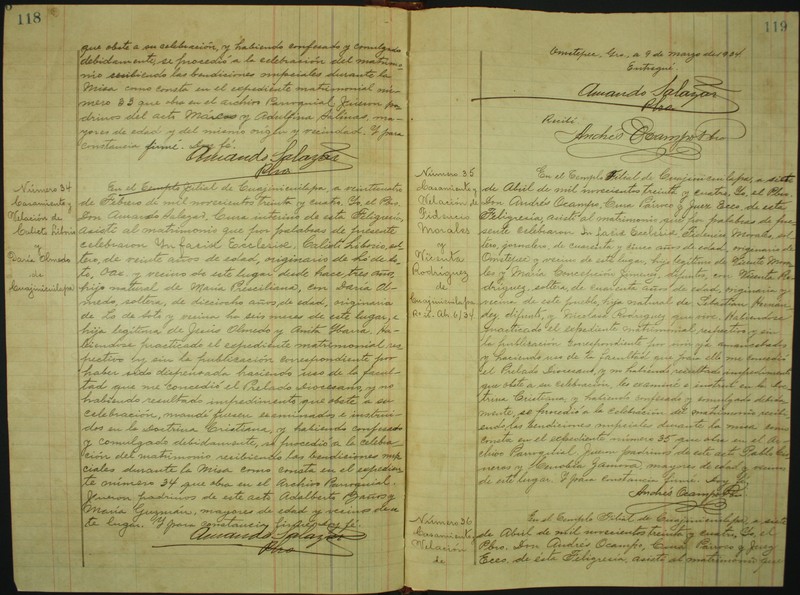 118
que obste a su celebración, y habiendo confesado y comulgado
debidamente, se procedió a la celebración del matrimo-
nio recibiendo las bendiciones nupciales durante la
Misa como consta en el expediente matrimonial nú-
mero 33 que obra en el archivo Parroquial. Fueron pa-
drinos del acto Marcos y Adulfina Salinas, ma-
yores de edad y del mismo origen y vecindad. Y para
constancia firmé. Doy fé.
Amando Salazar
Pbro
Número 34
Casamiento y
Velación de
Calixto Librio
y
Daría Olmedo
de
Cuajinicuilapa
En el Templo Filial de Cuajinicuilapa, a veintiocho
de Febrero de mil novecientos treinta y cuatro. Yo, el Pbro.
Don Amando Salazar, Cura interino de esta Feligresía,
asistí al matrimonio que por palabras de presente
celebraron In facie Ecclesiæ, Calixto Librio, sol-
tero, de veinte años de edad, originario de Lo de So-
to, Oax. y vecino de este lugar desde hace tres años,
hijo natural de María, con Daría Ol-
medo, soltera, de dieciocho años de edad, originaria
de Lo de Soto y vecina ha seis meses de este lugar, e
hija legítima de Jesús Olmedo y Anita. Ha-
biéndose practicado el expediente matrimonial res-
pectivo y sin la publicación correspondiente por
haber sido dispensada haciendo uso de la facul-
tad que me concedió el Prelado Diocesano, y no
habiendo resultado impedimento que obste a su
celebración, mandé fuesen examinados e instrui-
dos en la Doctrina Cristiana, y habiendo confesado
y comulgado debidamente, se procedió a la celebra-
ción del matrimonio recibiendo las bendiciones nup-
ciales durante la Misa como consta en el expedien-
te número 34 que obra en el Archivo Parroquial.
Fueron padrinos de este acto Adalberto y
María Guzmán, mayores de edad y vecinos de es-
te lugar. Y para constancia firmé. Doy fé.
Amando Salazar
Pbro
119
Ometepec, Gro., a 9 de Marzo de 1934
Entregué.
Amando Salazar
Pbro
Recibí
Andrés Ocampo Pbro
Número 35
Casamiento y
Velación de
Fidencio
Morales
y
Vicenta
Rodríguez
de
Cuajinicuilapa
Ab. 6/34
En el Templo Filial de Cuajinicuilapa, a siete
de Abril de mil novecientos treinta y cuatro. Yo, el Pbro.
Don Andrés Ocampo, Cura Párroco y Juez Ecco. de esta
Feligresía, asistí al matrimonio que por palabras de pre-
sente celebraron In facie Ecclesiæ Fidencio Morales, sol-
tero, jornalero, de cuarenta y cinco años de edad, originario de
Ometepec y vecino de este lugar, hijo legítimo de Vicente Mora-
les y María Concepción, difuntos, con Vicenta Ro-
dríguez, soltera, de cuarenta años de edad, originaria y
vecina de este pueblo, hija natural de Sebastián Hernán-
dez, difunto, y Rodríguez que vive. Habiéndose
practicado el expediente matrimonial respectivo, y sin
la publicación correspondiente por vivir ya amancebados
y haciendo uso de la facultad que para ello me concedió
el Prelado Diocesano, y no habiendo resultado impedimento
que obste a su celebración, les examiné e instruí en la Doc-
trina Cristiana, y habiendo confesado y comulgado debida-
mente, se procedió a la celebración del matrimonio recibi-
endo las bendiciones nupciales durante la misa como
consta en el expediente número 35 que obra en el Ar-
chivo Parroquial. Fueron padrinos de este acto Pablo
y Zamora, mayores de edad y vecinos
de este lugar. Y para constancia firmé. Doy fé.
Andrés Ocampo Pbro
Número 36
Casamiento y
Velación
de
En el Templo Filial de Cuajinicuilapa, a siete
de Abril de mil novecientos treinta y cuatro. Yo, el
Pbro. Don Andrés Ocampo, Cura Párroco y Juez
Ecco. de esta Feligresía, asistí al matrimonio que